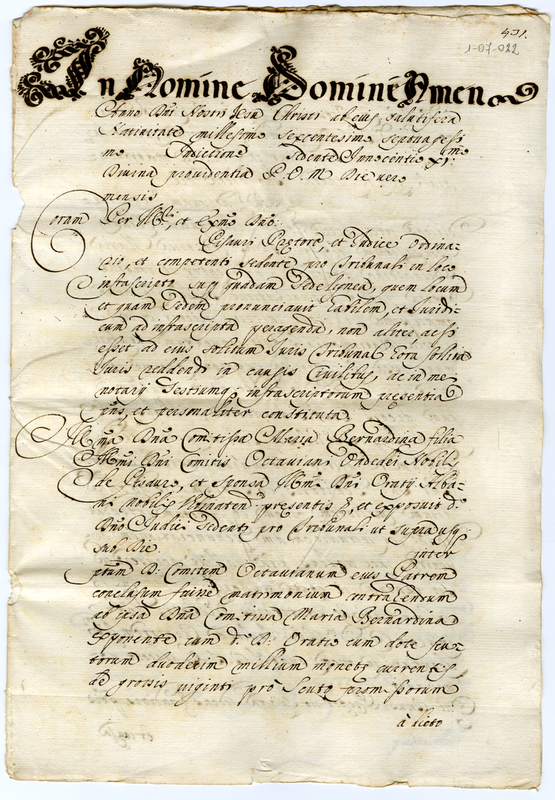 431.
1-07-022
In Nomine Domine Amen
Anno Dni Nostri Jesu Christi ab eius salutifera
Nativitate millesimo sexcentesimo septuagesi
mo Indictione sedente Innocentio XI.mo
Divina providentia P. O. M. Die vero
mensis
Coram Per Ill. et Exmo Dno.
Pisauri Pretore, et Iudice ordina-
rio, et competenti sedente pro Tribunali in loco
infrascripto sup quadam sede lignea, quem locum
et quam sedem pronunciavit habilem, et Iuridi-
cum ad infrascripta peragenda, non aliter, ac si
esset ad eius solitum Iuris Tribunal sollita
Iuris reddendi in causis Civilibus, ac in mei
notarij Testiumq; infrascriptorum presentia
pns, et personaliter constituta
Illma Dna Comitissa Maria Bernardina filia
Illmi Dni Comitis Octaviani Ondedei Nobilis
de Pisauro, et Sponsa Illmi Dni Oratij Alba-
ni nobilis presentis et exposuit d.
Dno Iudici sedenti pro Tribunali ut supra
sub Die inter
ptum D. Comitem Octavianum eius Patrem
conclusum fuisse matrimonium contrahendum
ab ipsa Dna Comitissa Maria Bernardina
exponente cum d. D. Oratio cum dote scu-
torum duodecim millium monete currentis
de grossis viginti pro scuto promissorum
à dicto